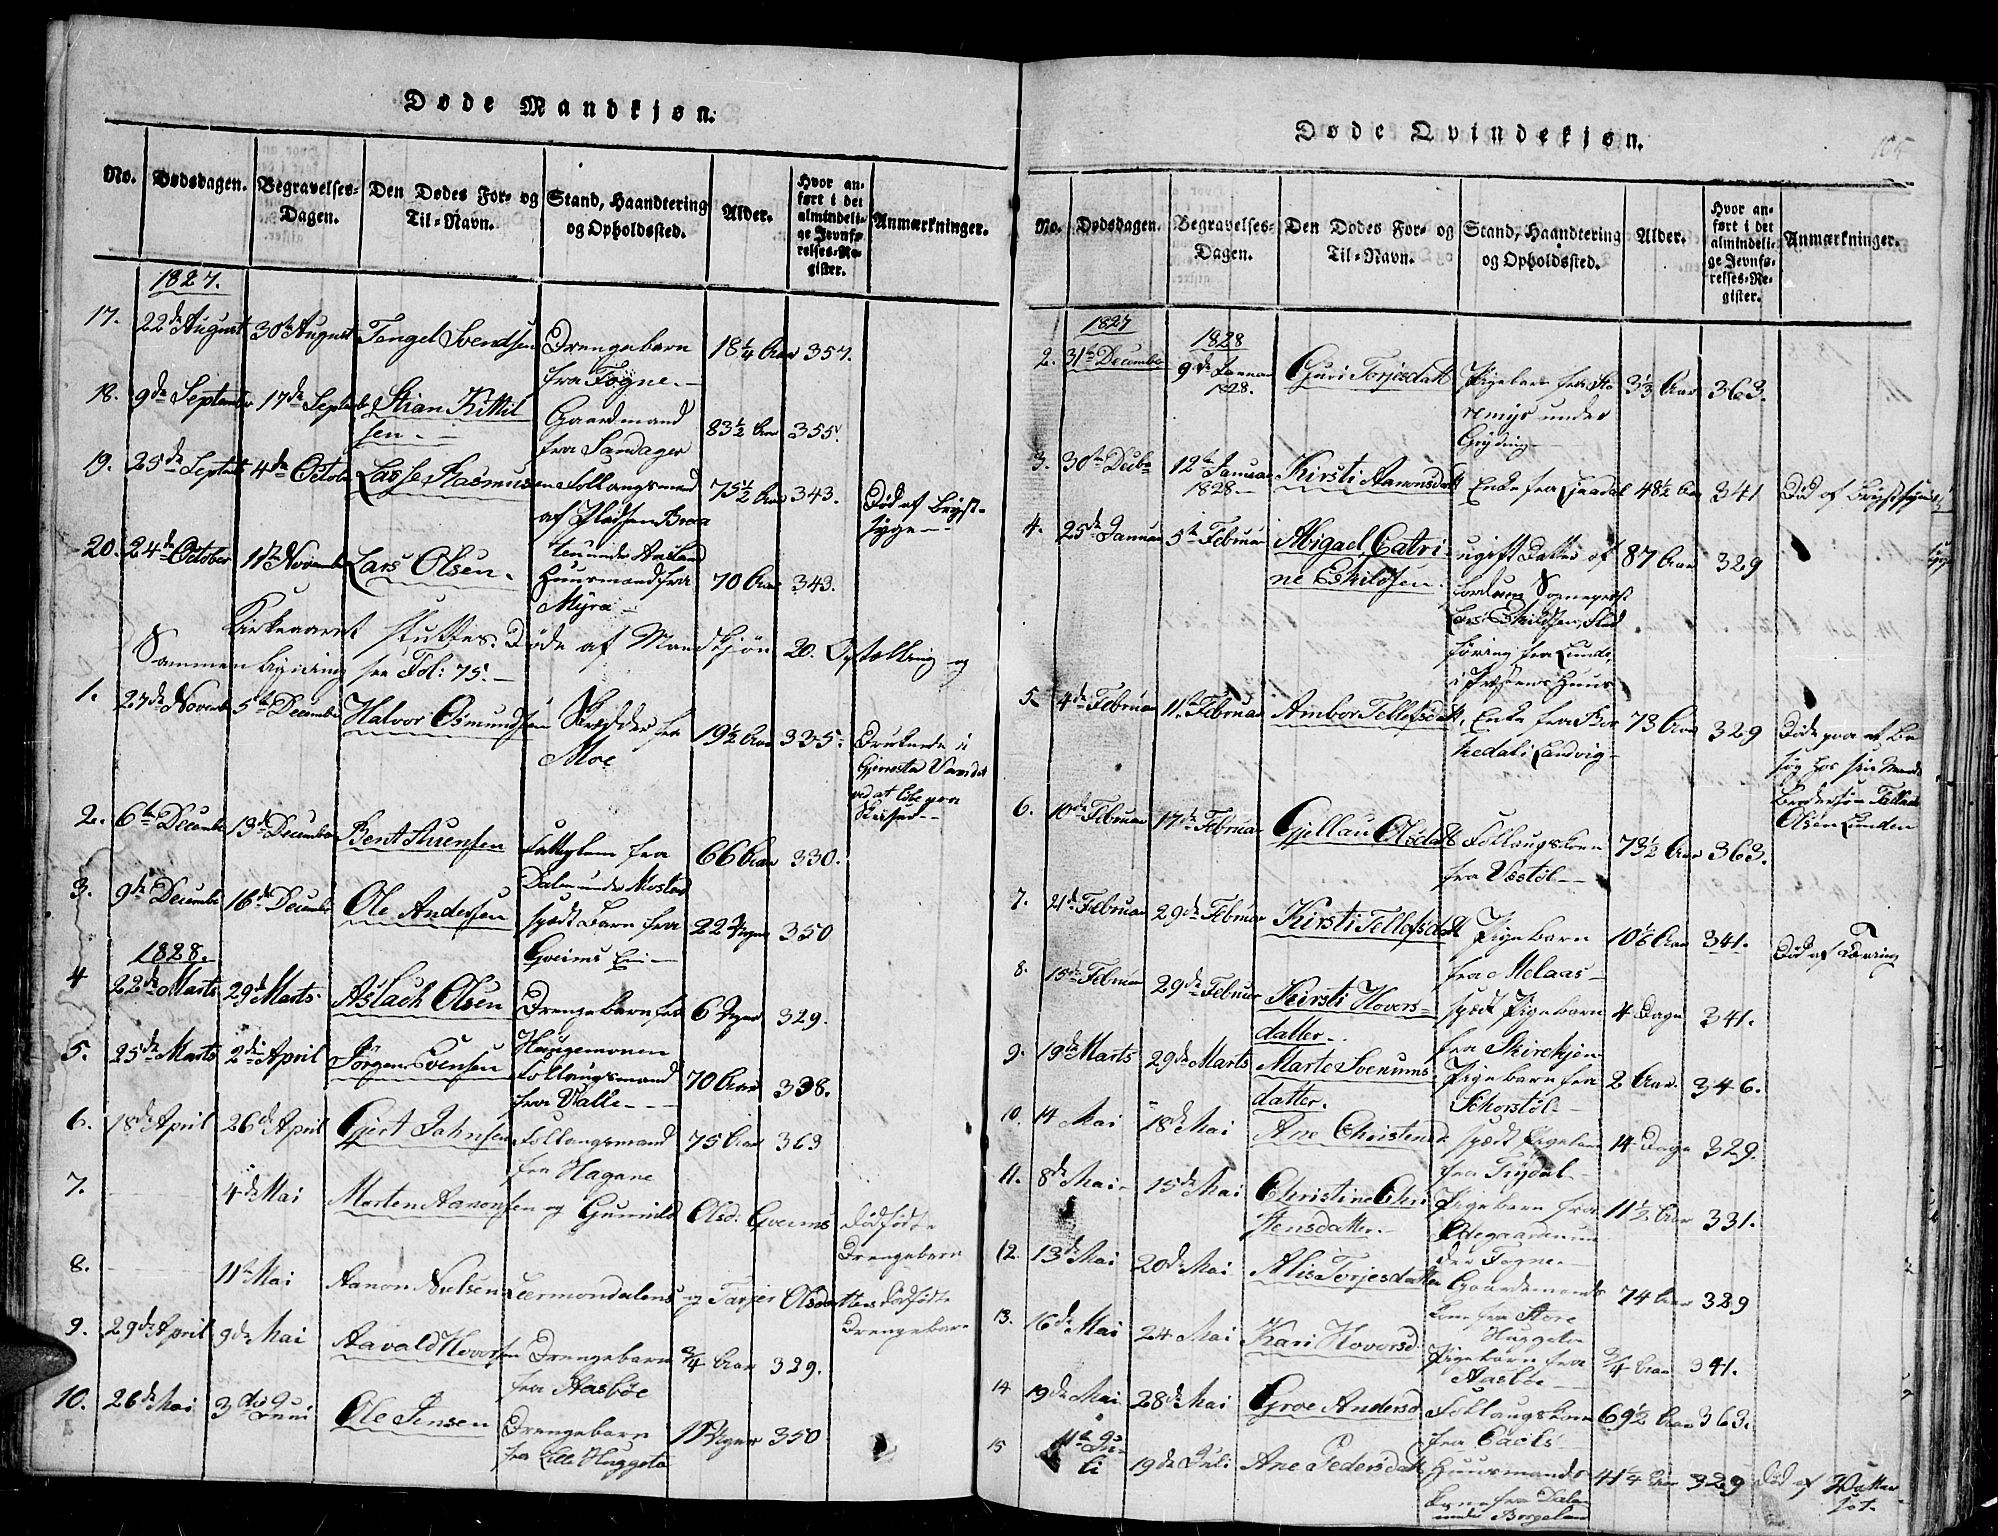 Døde Mandkjøn.
No. Dødsdagen. Begravelses-Dagen. Den Dødes For- og Til-Navn. Stand, Haandtering og Opholdssted. Alder. Hvor anført i det almindelige Jevnførelses-Register. Anmærkninger.
1827.
17. 22de August 30te August Tengel Svendsen Drengebarn fra Fogne. 18¼ Aar 357.
18. 9de September 17de Septemb Stian Kittilsen Gaardmand fra Sandager 83½ Aar 355.
19. 25de Septemb 4de Octobr Lasse Rasmusen Follaugsmand af Pladsen Braaten under Aasland 75½ Aar 343. Død af Brystsyge
20. 24de October 1ste Novembr Lars Olsen. Huusmand fra Myra 70 Aar 343.
Kirkeaaret sluttes. Døde af Mandkjøn 20. Optælling og
Sammenligning see Fol: 75.
1. 27de Novemb 5te Decembr Halvor Osmundsen Skrædder fra Moe 19½ Aar 335. Druknede i Gjerestad Vandet ved at løbe paa Skisser
2. 6te Decembr 13de December Bent Auensen Fattiglem fra Dalen under Mostad 66 Aar 330.
3. 9de Decembr 16de Decembr Ole Andersen spædt Barn fra Goeims Eie 22 Uger 350
1828.
4 22de Marts 29de Marts Aslach Olsen Drengebarn fra Haugemonen 6 Uger 329.
5. 25de Marts 2de April Jörgen Svensen Follaugsmand fra Valle 70 Aar 338.
6. 18de April 26de April Gjert Jahnsen Follaugsmand fra Hagane 75 Aar 363
7. 4de Mai Morten Aanonsen og Gunild Olsd: Goeims dødfødte Drengebarn
8. 11te Mai Aanon Nielsen Leermondalens og Tarjer Olsdatters dødfødte Drengebarn
9. 29de April 9de Mai Aavald Hovorsen Drengebarn fra Aasbøe ¾ Aar 329.
10. 26de Mai 3die Juni Ole Jensen Drengebarn fra Lille Huggeto 11 Uger 350
Døde Qvindekjøn.
105
No. Dødsdagen. Begravelses-Dagen. Den Dødes For- og Til-Navn. Stand, Haandtering og Opholdssted. Alder. Hvor anført i det almindelige Jevnførelses-Register. Anmærkninger.
1827 1828
2. 31te December 9de Januar 1828. Guri Torjesdatt Pigebarn fra under Gryting 3⅓ Aar 363.
3. 30te Decbr 12te Januar 1828 Kirsti Aanonsdatt Enke fra 48½ Aar 341 Død af Brystsyge
4. 25de Januar 5te Februar Abigael Catrine Eskildsen ugift Datter af fordum Sognepræst Lars Eskildsen, fra Lunde, i Præstens Huus 87 Aar 329
5 4de Februar 11te Februar Ambor Tellefsdatt, Enke fra Birkedal i Landvig 73 Aar 329 Døde paa et Besøg hos sin Mands Brodersøn Tellef Olsen Lunden
6. 10de Februar 17de Februar Gjellau Olsdatt Follaugskone fra Væstøl 73½ Aar 363.
7. 21de Februar 29de Februar Kirsti Tellefsdatt Pigebarn fra Melaas 10⅙ Aar 341. Død af Tæring
8. 15de Februar 29de Februar Keirsti Hovorsdatter. spædt Pigebarn fra Skirekjen 4 Dage 341.
9. 19de Marts 29de Marts Marte Svenumsdatter. Pigebarn fra Skorstöl 2 Aar. 346.
10. 14 Mai 18de Mai Ane Christensd spædt Pigebarn fra Trydal 14 Dage 329.
11. 8de Mai 15de Mai Christine Christensdatter. Pigebarn fra Ødegaarden under Fogne 11½ Aar 331.
12. 13de Mai 20de Mai Alis Torjesdatter Gaardmands Kone fra Store Huggeto 74 Aar 329
13. 16de Mai 24 Mai Kari Hovorsd. Pigebarn fra Aasbøe ¾ Aar 341.
14 19de Mai 28de Mai Groe Andersd. Follaugskone fra Eachs 69½ Aar 363.
15 11te Juli 19de Juli Ane Pedersdatt Huusmands Kone fra Dalen under Borgeland 41¼ Aar 329 Død af Vattersot.